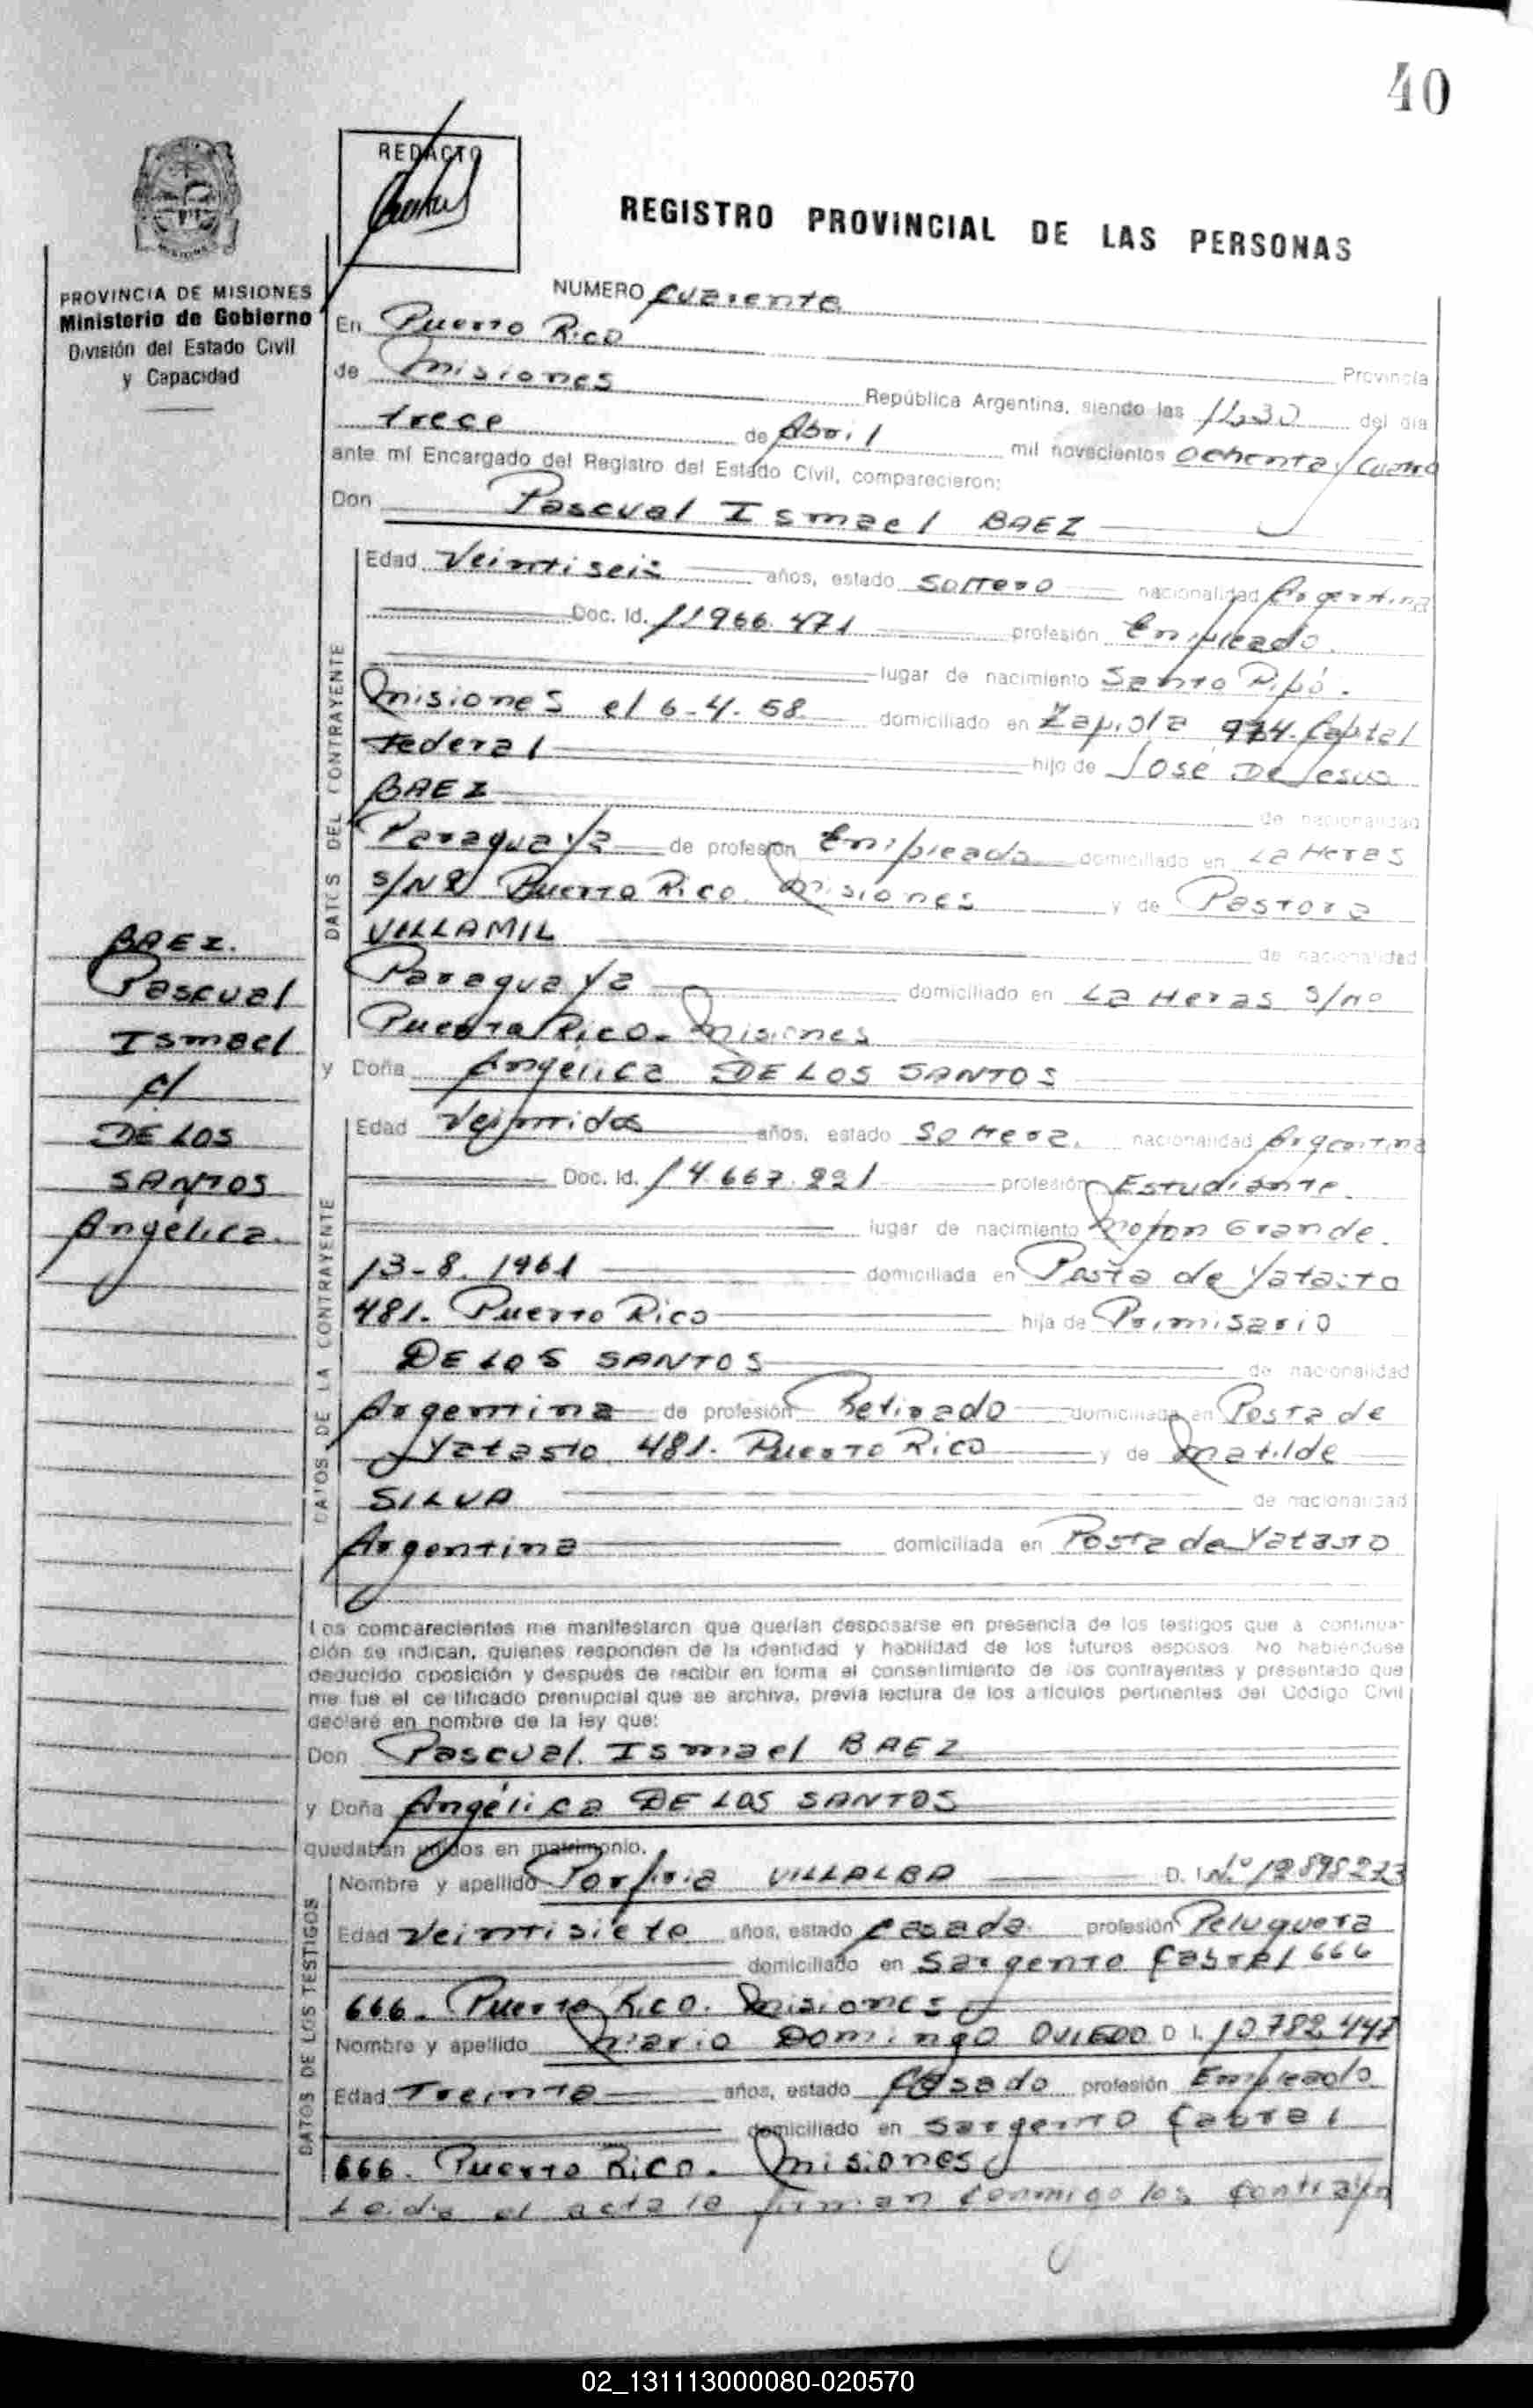 40
REDACTO
REGISTRO PROVINCIAL DE LAS PERSONAS
PROVINCIA DE MISIONES
Ministerio de Gobierno
División del Estado Civil
y Capacidad
NUMERO cuarenta
En Puerto Rico
Provincia
de Misiones República Argentina, siendo las 11,30 del día
trece de Abril mil novecientos ochenta y cuatro
ante mí Encargado del Registro del Estado Civil, comparecieron:
Don Pascual Ismael BAEZ
DATOS DEL CONTRAYENTE
Edad Veintiseis años, estado Soltero nacionalidad Argentina
Doc. Id. 11966.471 profesión Empleado.
lugar de nacimiento Santo Pipó.
Misiones el 6-4-58 domiciliado en Zapiola Capital
Federal hijo de Jose De Jesus
BAEZ de nacionalidad
Paraguaya de profesión Empleado domiciliado en La Heras
S/Nº Puerto Rico Misiones y de Pastora
VILLAMIL de nacionalidad
Paraguaya domiciliado en La Heras S/nº
Puerto Rico. Misiones
BAEZ.
Pascual
Ismael
c/
DE LOS
SANTOS
Angélica.
y Doña Angélica DE LOS SANTOS
DATOS DE LA CONTRAYENTE
Edad Veintidos años, estado Soltera. nacionalidad Argentina
Doc. Id. 14.667.221 profesión Estudiante.
lugar de nacimiento Mojon Grande.
13-8-1961 domiciliada en Posta de Yatasto
481. Puerto Rico hija de Primisario
DE LOS SANTOS de nacionalidad
Argentina de profesión Retirado domiciliado en Posta de
Yatasto 481. Puerto Rico y de Matilde
SILVA de nacionalidad
Argentina domiciliada en Posta de Yatasto
Los comparecientes me manifestaron que querían desposarse en presencia de los testigos que a continua-
ción se indican, quienes responden de la identidad y habilidad de los futuros esposos. No habiéndose
deducido oposición y después de recibir en forma el consentimiento de los contrayentes y presentado que
me fue el ce tificado prenupcial que se archiva, previa lectura de los artículos pertinentes del Código Civil
declaré en nombre de la ley que:
Don Pascual Ismael BAEZ
y Doña Angélica DE LOS SANTOS
quedaban unidos en matrimonio.
DATOS DE LOS TESTIGOS
Nombre y apellido Porfiria VILLALBA D. I. Nº 12898273
Edad Veintisiete años, estado casada. profesión Peluquera
domiciliado en Sargento Cabral 666
666. Puerto Rico. Misiones
Nombre y apellido Mario Domingo OVIEDO D. I. 10.782.447
Edad Treinta años, estado Casado profesión Empleado
domiciliado en Sargento Cabral
666. Puerto Rico. Misiones
Leida el acta la firman conmigo los contrayen
02_131113000080-020570